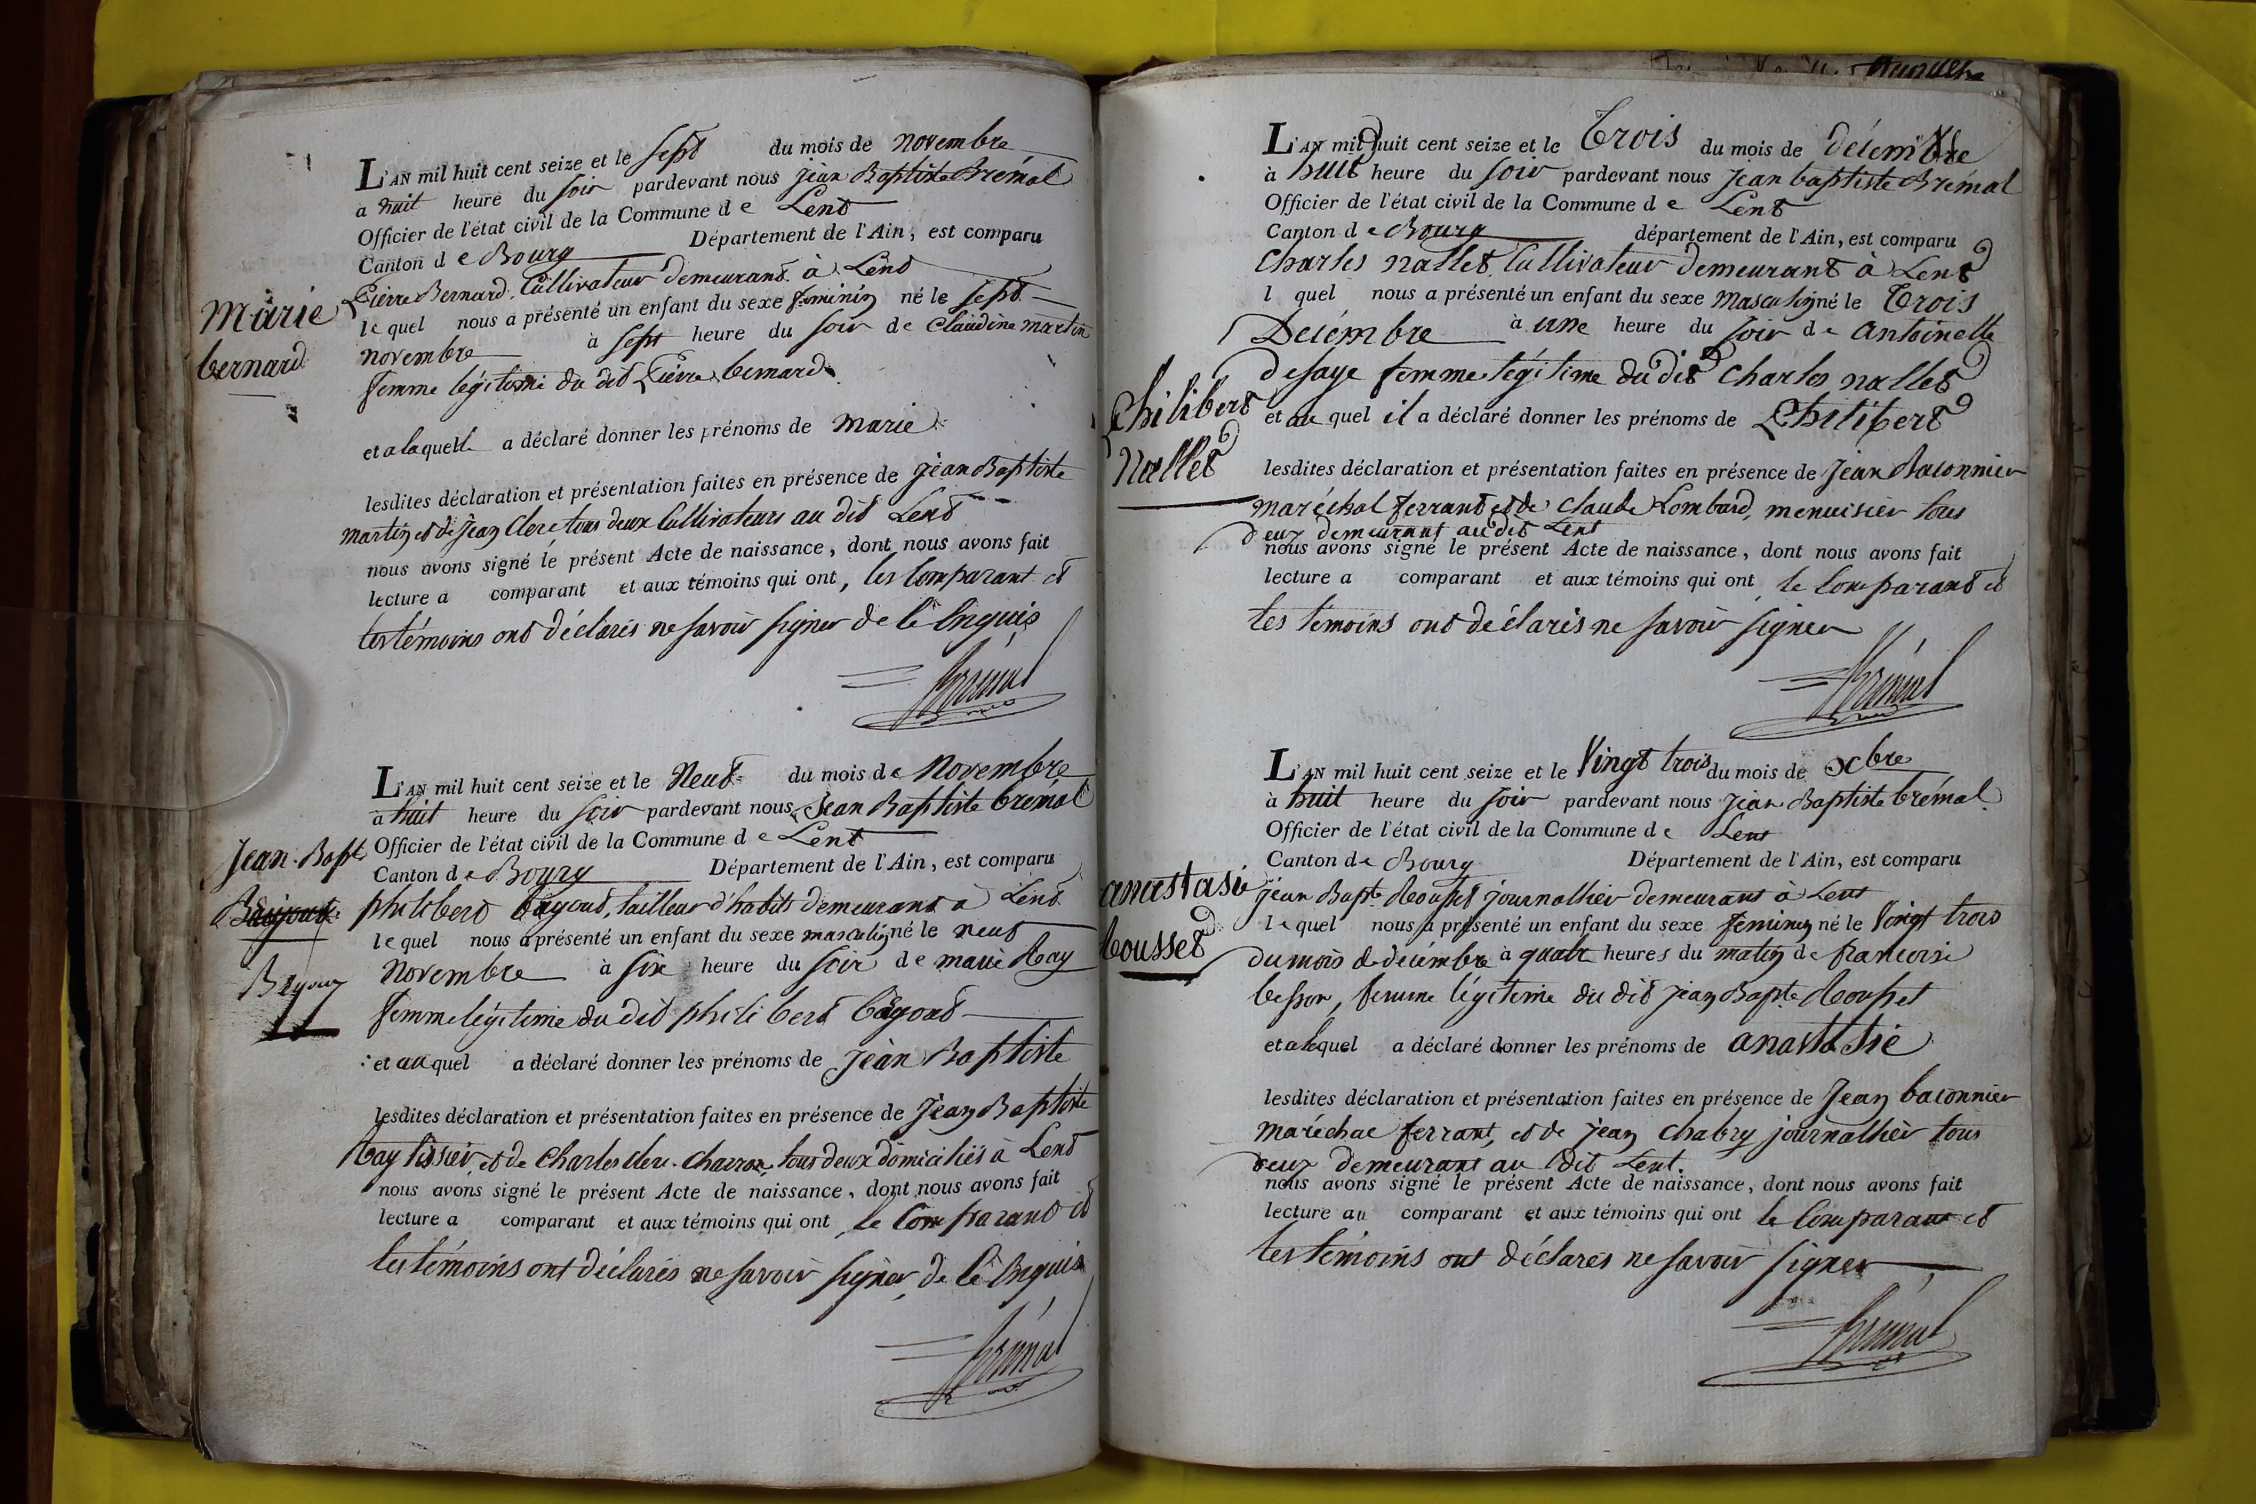 Marie
bernard
L'AN mil huit cent seize et le sept du mois de novembre
a huit heure du soir pardevant nous jean Baptiste Brémal
Officier de l'état civil de la Commune d e Lent
Canton d e Bourg Département de l'Ain, est comparu
Pierre Bernard, Cultivateur demeurant à Lent
le quel nous a présenté un enfant du sexe feminin né le sept
novembre à sept heure du soir de Claudine martin
femme légitime du dit Pierre bernard
et a laquelle a déclaré donner les prénoms de marie
lesdites déclaration et présentation faites en présence de jean Baptiste
martin et de Jean Clerc tous deux Cultivateurs au dit Lent
nous avons signé le présent Acte de naissance, dont nous avons fait
lecture a comparant et aux témoins qui ont, les Comparant et
les témoins ont déclarés ne savoir signer de ce Enquis
Brémal
Jean-Bapt
Bayout
L'AN mil huit cent seize et le Neuf du mois d e Novembre
a huit heure du soir pardevant nous Jean Baptiste brémal
Officier de l'état civil de la Commune d e Lent
Canton d e Bourg Département de l'Ain, est comparu
philibert bayout, tailleur d'habits demeurant a Lent
le quel nous a présenté un enfant du sexe masculin né le neuf
novembre à six heure du soir de marie Ray
femme légitime du dit philibert bayout
et au quel a déclaré donner les prénoms de Jean Baptiste
lesdites déclaration et présentation faites en présence de Jean Baptiste
Ray tissier, et de Charles clerc charron, tous deux domiciliés à Lent
nous avons signé le présent Acte de naissance, dont nous avons fait
lecture a comparant et aux témoins qui ont, le Comparant et
les témoins ont déclarés ne savoir signer, de ce Enquis
Brémal
L'AN mil huit cent seize et le Trois du mois de décembre
à huit heure du soir pardevant nous Jean baptiste Brémal
Officier de l'état civil de la Commune d e Lent
Canton d e Bourg département de l'Ain, est comparu
Charles nallet, Cultivateur demeurant à Lent
l quel nous a présenté un enfant du sexe Masculin né le Trois
Décembre à une heure du soir d e antoinette
desaye femme légitime du dit Charles nallet
Philibert
Nallet
et au quel il a déclaré donner les prénoms de Philibert
lesdites déclaration et présentation faites en présence de Jean Baconnier
maréchal ferrant et de Claude Lombard, menuisier tous
deux demeurant au dit Lent
nous avons signé le présent Acte de naissance, dont nous avons fait
lecture a comparant et aux témoins qui ont, le Comparant et
les témoins ont déclarés ne savoir signer
Brémal
L'AN mil huit cent seize et le Vingt trois du mois de Xbre
à huit heure du soir pardevant nous Jean Baptiste brémal
Officier de l'état civil de la Commune d e Lent
Canton d e Bourg Département de l'Ain, est comparu
anastasie
Rousset
jean Bapte Rousset journallier demeurant à Lent
l e quel nous a présenté un enfant du sexe feminin né le Vingt trois
du mois de décembre à quatre heures du matin d e francoise
besson, femme légitime du dit jean Bapte Rousset
et a lequel a déclaré donner les prénoms de anastasie
lesdites déclaration et présentation faites en présence de Jean baconnier
Maréchal ferrant, et de jean Chabry journallier tous
deux demeurant au dit Lent.
nous avons signé le présent Acte de naissance, dont nous avons fait
lecture au comparant et aux témoins qui ont le Comparant et
les témoins ont déclarés ne savoir signer
Brémal